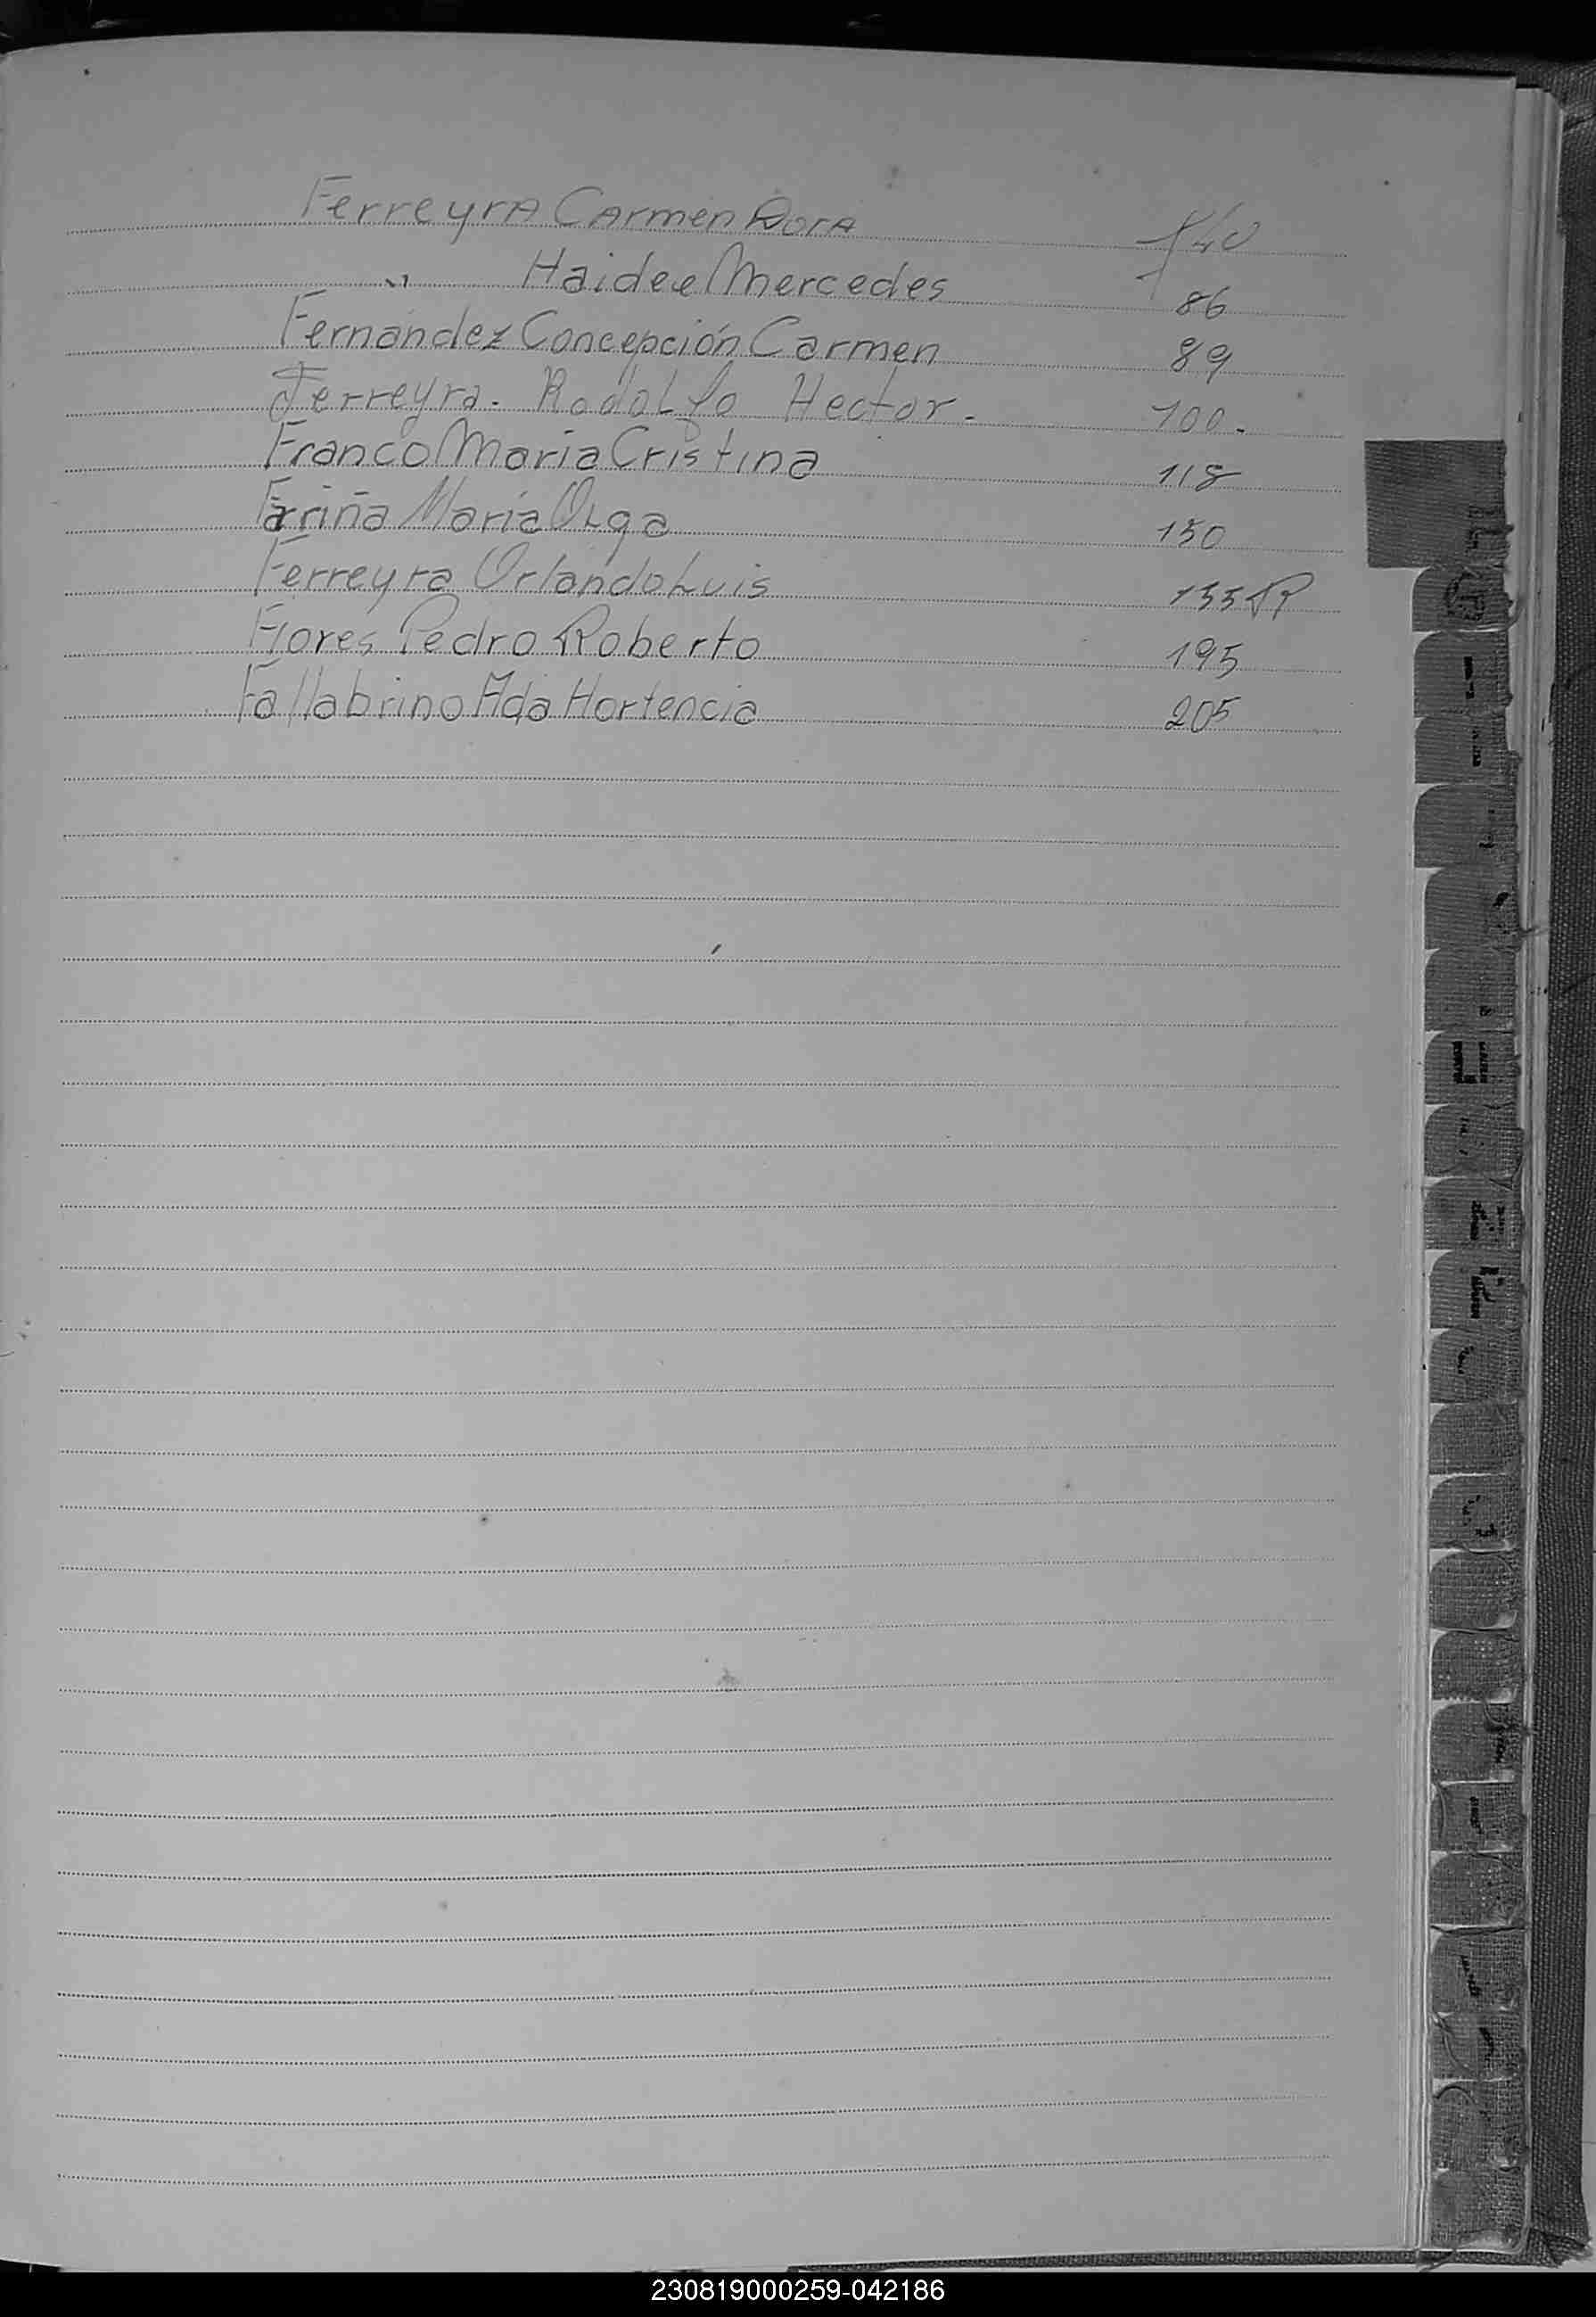 Ferreyra Carmen Dora f 40
" Haidee Mercedes 86
Fernández Concepción Carmen 89
Ferreyra. Rodolfo Hector. 100.
Franco Maria Cristina 118
Fariña María Olga 150
Ferreyra Orlando Luis 155
Flores Pedro Roberto 195
Fallabrino Ada Hortencia 205
230819000259-042186